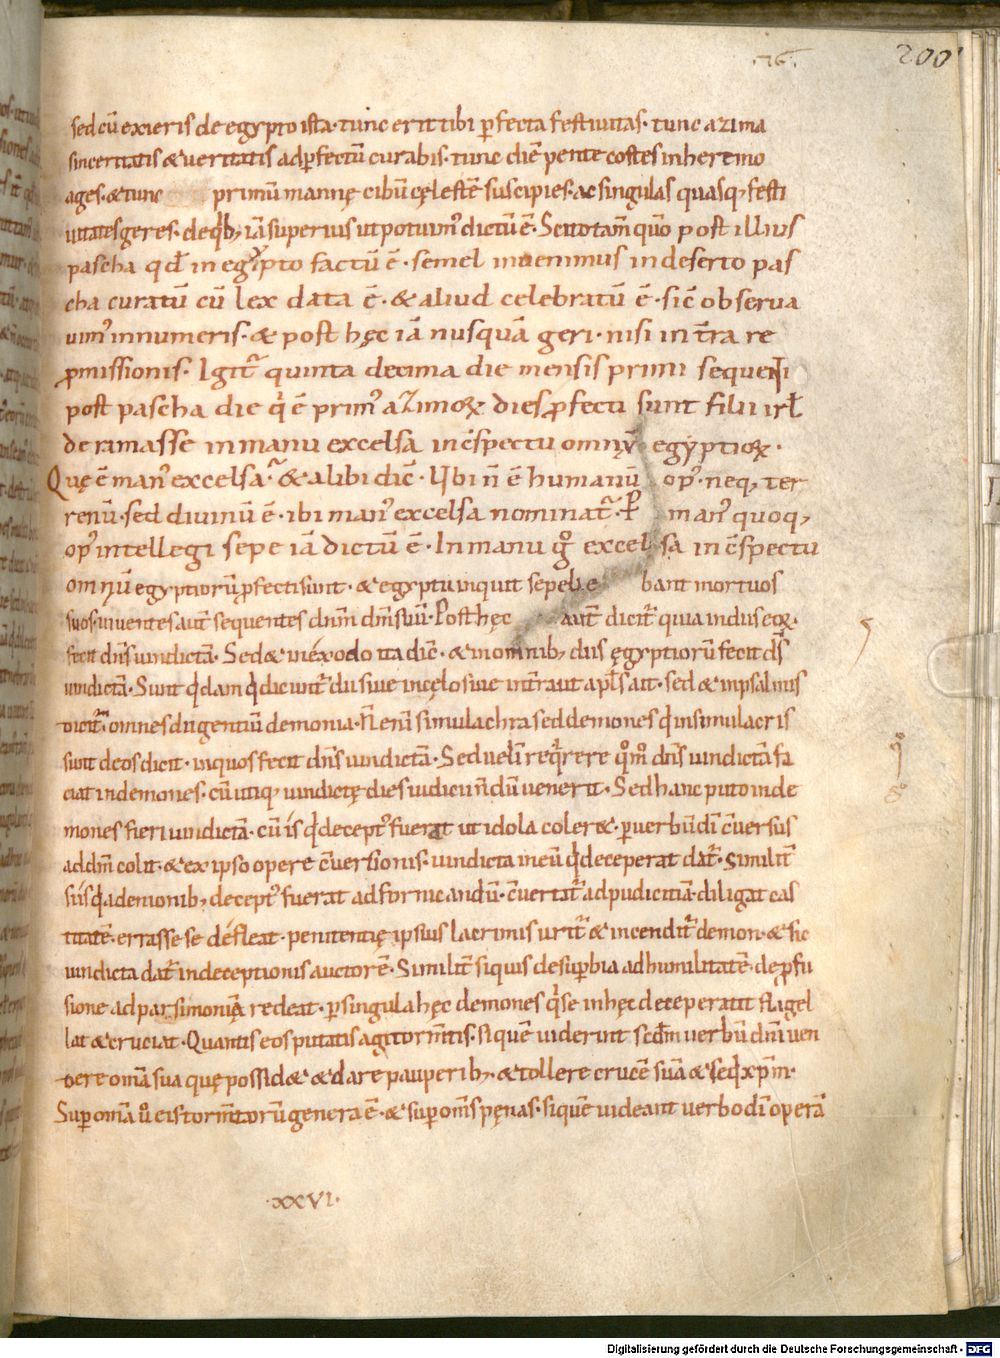 ·76·
200
sed cū exieris de egypto ista· tunc erit tibi pfecta festiuitas· tunc azima
sinceritatis & ueritatis ad pfectū curabis· tunc diē pentecostes in heremo
ages· & tunc primū mannę cibū cęlestē suscipies· ac singulas quasq; festi
uitates geres· de qb; iā superius ut potuim' dictū ē· Scito tam̄ quō post illius
pascha qd̄ in egypto factū ē· semel inuenimus in deserto pas
cha curatū cū lex data ē· & aliud celebratū ē· sic̄ obserua
uim' in numeris· & post hęc iā nusquā geri· nisi in t̄ra re
pmissionis· Igit̄ quinta decima die mensis primi sequenti
post pascha die q' ē prim' azimoꝝ dies pfecti sunt filii isrl̄
de ramasse in manu excelsa in c̄spectu omniū egyptioꝝ·
Quę ē man' excelsa· & alibi dic̄· Ubi n̄ ē humanū op'· neq; ter
renū· sed diuinū ē· ibi man' excelsa nominat̄· P man' quoq;
op' intellegi sepe iā dictū ē· In manu g° excelsa in c̄spectu
omniū egyptiorū pfecti sunt· & egyptii inquit sepeliebant mortuos
suos· uiuentes aut̄ sequentes dnm̄ dm̄ suū· Post hęc aut̄ dicit̄ quia in diis eoꝝ·
fecit dn̄s uindictā· Sed & in exodo ita dic̄· & in omnib; diis ęgyptiorū fecit ds̄
uindictā· Sunt qdam q dicunt̄ dii siue in cęlo siue in t̄ra ut apl̄s ait· sed & in psalmis
dicit̄· omnes dii gentiū demonia· N̄ enī simulachra sed demones q in simulacris
sunt deos dicit· in quos fecit dn̄s uindictā· Sed uelī reqrere q°m° dn̄s uindictā fa
ciat in demones· cū utiq; uindictę dies iudicii n̄dū uenerit· Sed hanc puto in de
mones fieri uindictā· cū is q decept' fuerat ut idola coleret· p uerbū dī c̄uersus
ad dm̄ colit· & ex ipso opere c̄uersionis· uindicta in eū q deceperat dat̄· Similit̄
si is q a demonib; decept' fuerat ad fornicandū· c̄uertat̄ ad pudicitiā· diligat cas
titatē· errasse se defleat· penitentię ipsius lacrimis urit̄ & incendit̄ demon· & sic
uindicta dat̄ in deceptionis auctorē· Similit̄ si quis de supbia ad humilitatē· de pfu
sione ad parsimoniā redeat· p singula hęc demones q se in hęc deceperant flagel
lat & cruciat· Quantis eos putatis agi torm̄tis· si quē uiderint scdm̄ uerbū dn̄i uen
dere omīa sua quę possid& & dare pauperib;· & tollere crucē suā & seq xp̄m·
Sup omīa u° eis torm̄torū genera ē· & sup om̄s pęnas· si quē uideant uerbo dī operā
·xxvi·